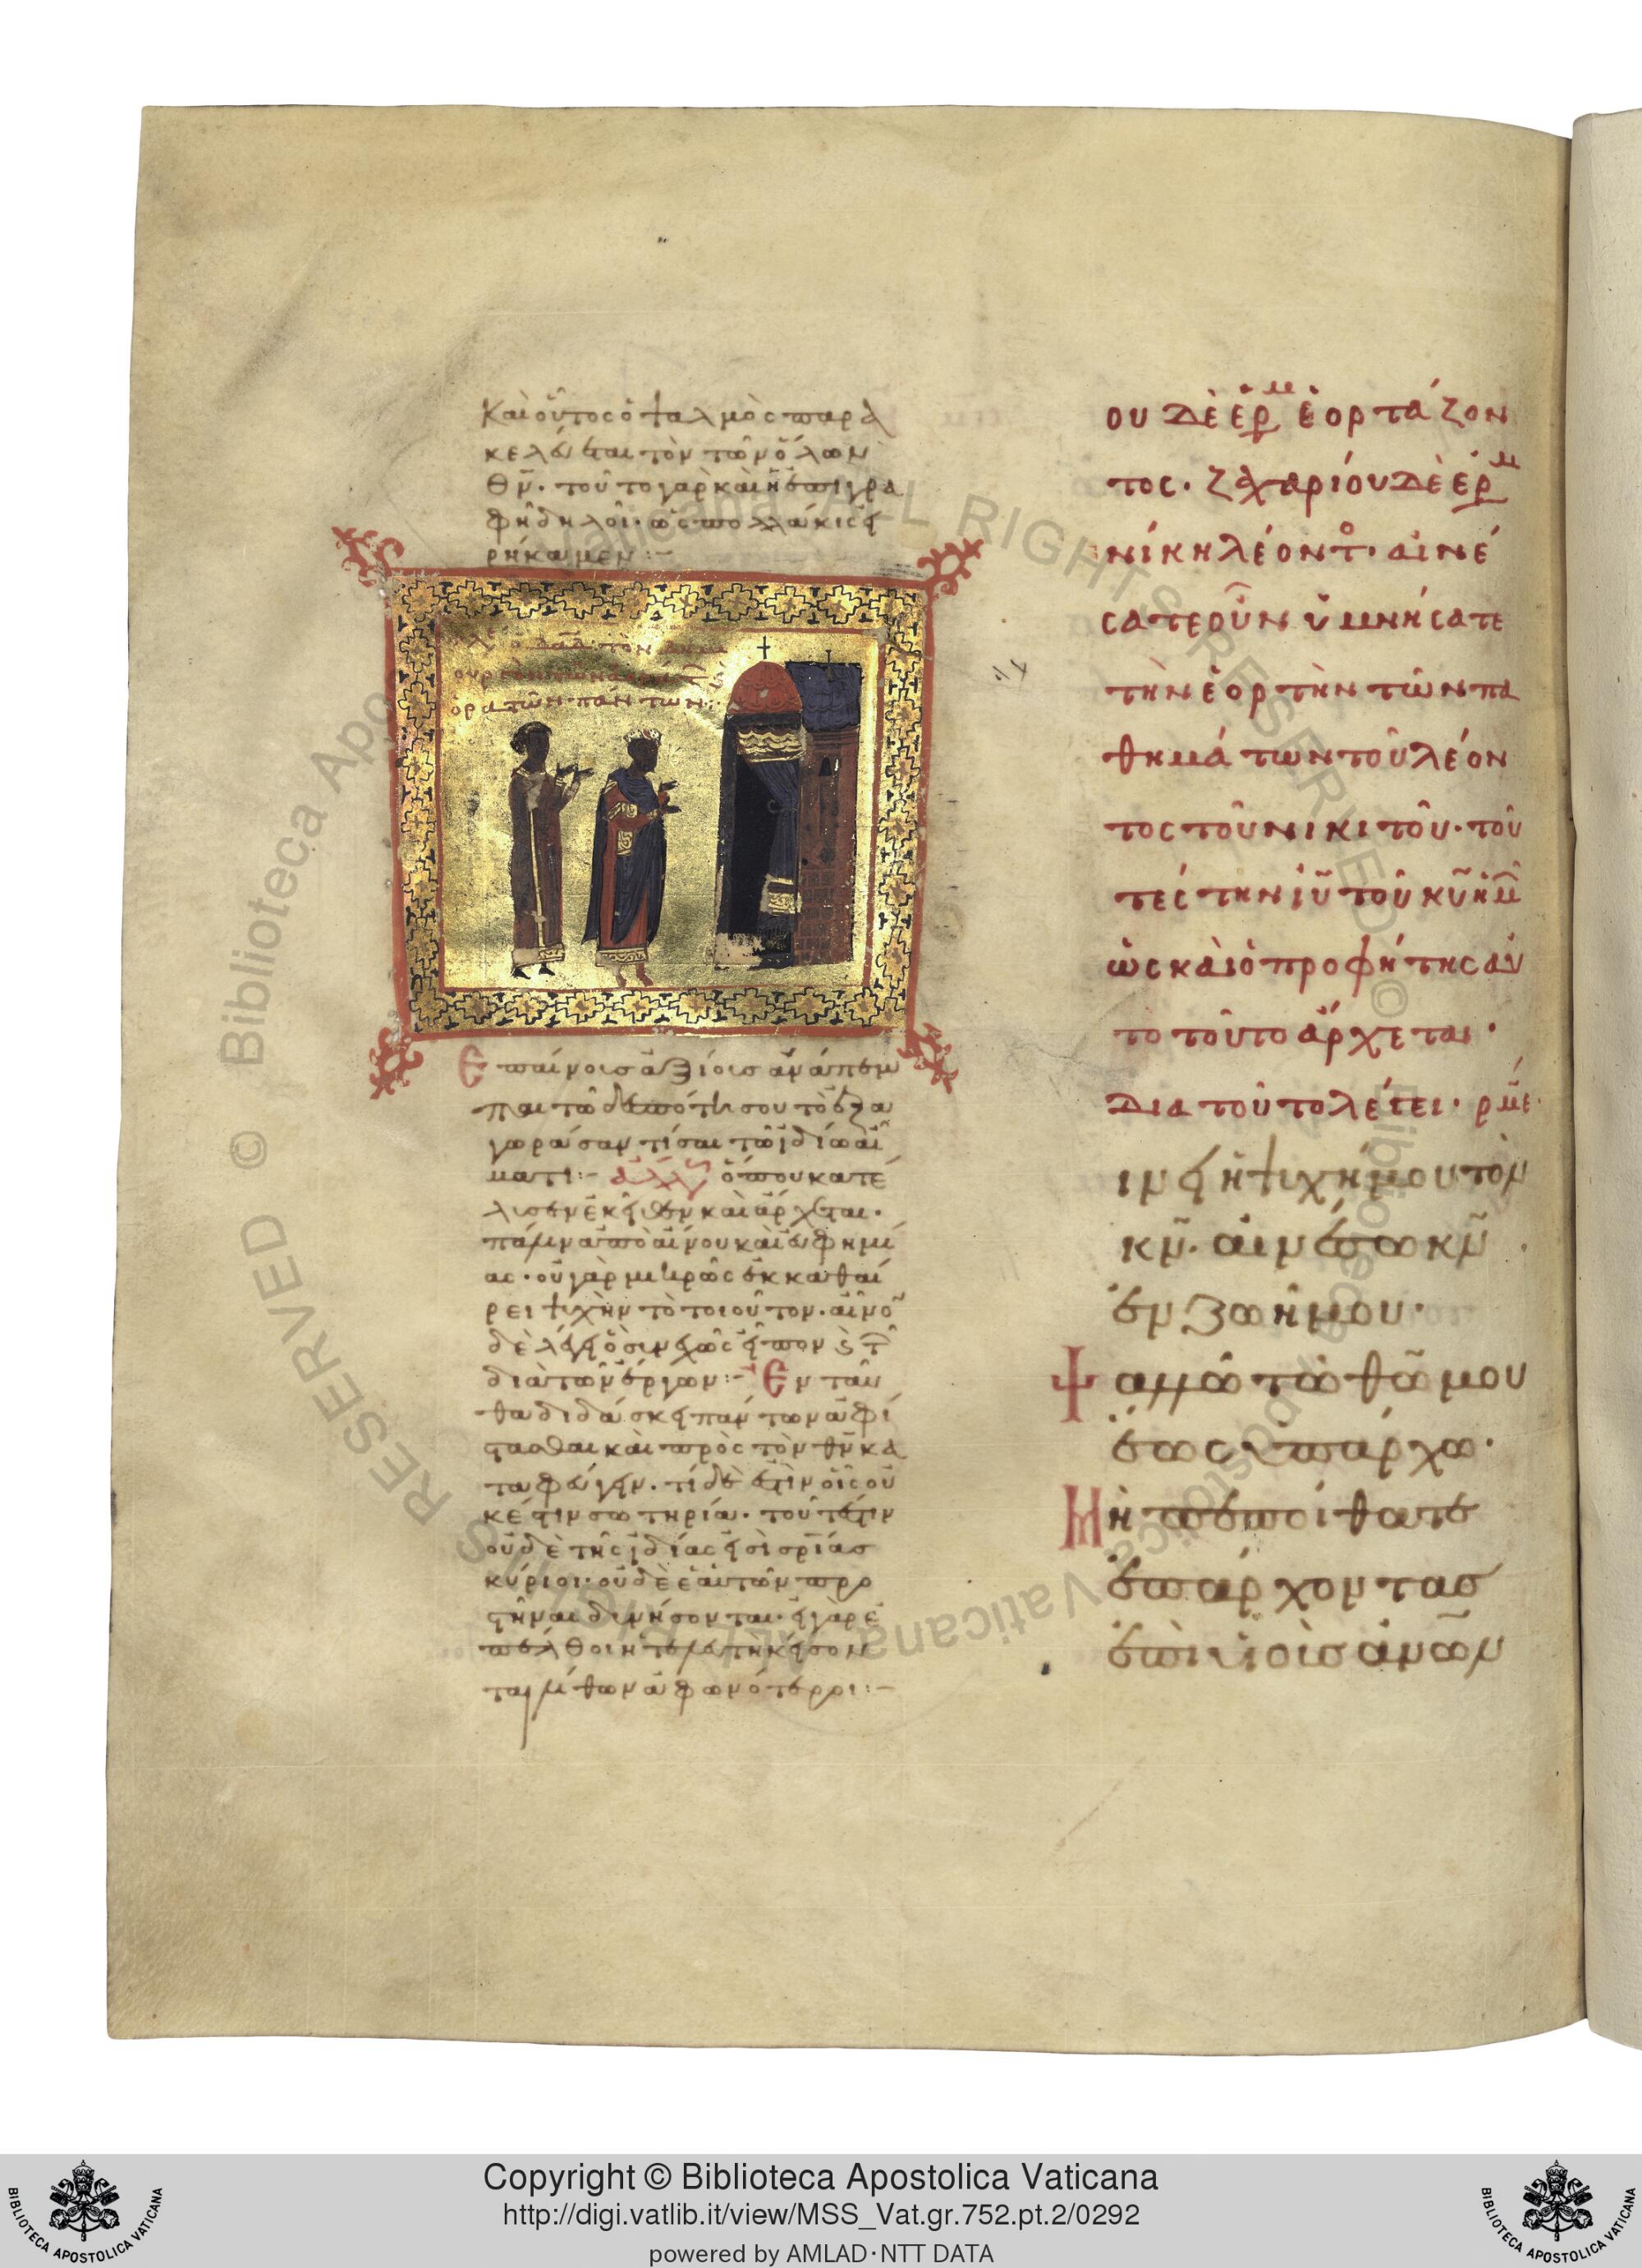 Καὶ οὗτος ὁ ψαλμὸς παρα
κελεύεται τὸν τῶν ὅλων
θν̄· τοῦτο γὰρ καὶ ἡ ἐπιγρα
φὴ δηλοῖ· ὡς πολλάκις εἰ
ρήκαμεν:-
ὁ δαδ τὸν
ορατῶν πάντων:
Ἐπαίνοις ἀξίοις ἀνάπεμ
παι τῶ δεσπότη σου τὸ ἐξα
γοράσαντί σαι τῶ ἰδίω αἵ
ματι:- ὅπου κατέ
λισεν ἐκεῖθεν καὶ ἄρχεται·
αἴνου καὶ εὐφημί
ας· οὐ γὰρ μικρῶς ἐκκαθαί
ρει ψιχὴν τὸ τοιοῦτον· αἶνο
δὲ λέγει
διὰ τῶν ἔργων:- Ἐνταῦ
θα διδάσκει πάντων ἀφί
στασθαι καὶ πρὸς τὸν θν̄ κα
ταφεύγειν· τί δέ ἐστιν οἷς οὐ
κ έστιν σωτηρία· τουτέστιν
οὐδὲ τῆς ἰδίας εἰσὶ σρίας
κύριοι· οὐδὲ ἑαυτῶν προ
στῆναι δινήσονται· εἰ γὰρ ἐ
πέλθοι ἡ τελετὴ κείσον
ται λίθων ἀφωνότεροι:-
ου δὲ ἑρμ ἑορτάζον
τος· ζαχαρίου δὲ ἑρμ
νίκη λέοντο· αἰνέ
σατε οὖν ὑμνήσατε
τὴν ἑορτὴν τῶν πα
θημάτων τοῦ λέον
τος τοῦ νικιτοῦ· τοῦ
τέστην ἰῦ τοῦ κῦ ἡμ
ὡς καὶ ὁ προφήτης αὐ
το τοῦτο ἄρχεται·
Διὰ τοῦτο λέγει· ρμε·
ινει ἡ ψιχή μου τὸν
κν̄· αἰνέσω κν̄
ἐν ζωῆ μου·
Ψαλλῶ τῶ θῶ μου
ἕως ὑπάρχω·
Μὴ πεποίθατε
ἐπ άρχοντας
ἐπὶ υἱοὶς ἀνων
Copyright © Biblioteca Apostolica Vaticana
http://digi.vatlib.it/view/MSS_Vat.gr.752.pt.2/0292
powered by AMLAD·NTT DATA
BIBLIOTECA APOSTOLICA VATICANA
BIBLIOTECA APOSTOLICA VATICANA
© Biblioteca Apostolica Vaticana ALL RIGHTS RESERVED
© Biblioteca Apostolica Vaticana ALL RIGHTS RESERVED